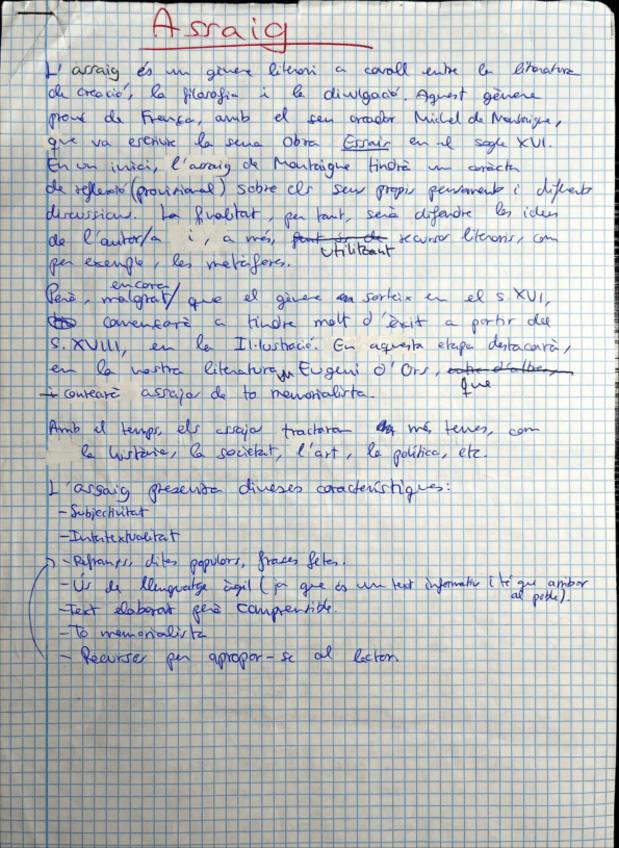 Assaig
L'assaig és un gènere literari a cavall entre la literatura
de creació, la filosofia i la divulgació. Aquest gènere
prové de França, amb el seu creador Michel de Montaigne,
que va escriure la seva obra Essais en el segle XVI.
En un inici, l'assaig de Montaigne tindrà un caràcter
de reflexió (provisional) sobre els seus propis pensaments i diferents
discussions. La finalitat, per tant, serà defendre les idees
de l'autor/a i, a més, utilitzant recursos literaris, com
per exemple, les metàfores.
Però, malgrat/encara que el gènere sorteix en el s. XVI,
començarà a tindre molt d'èxit a partir del
S. XVIII, en la Il·lustració. En aquesta etapa destacarà,
en la nostra literatura, Eugeni d'Ors, que
conrearà assajos de to memorialista.
Amb el temps, els assajos tractaran més temes, com
la història, la societat, l'art, la política, etc.
L'assaig presenta diverses característiques:
- Subjectivitat
- Intertextualitat
- Refranys, dites populars, frases fetes.
- Ús de llenguatge àgil (ja que és un text informatiu i té que arribar
al poble).
- Text elaborat però comprensible.
- To memorialista
- Recursos per apropar-se al lector